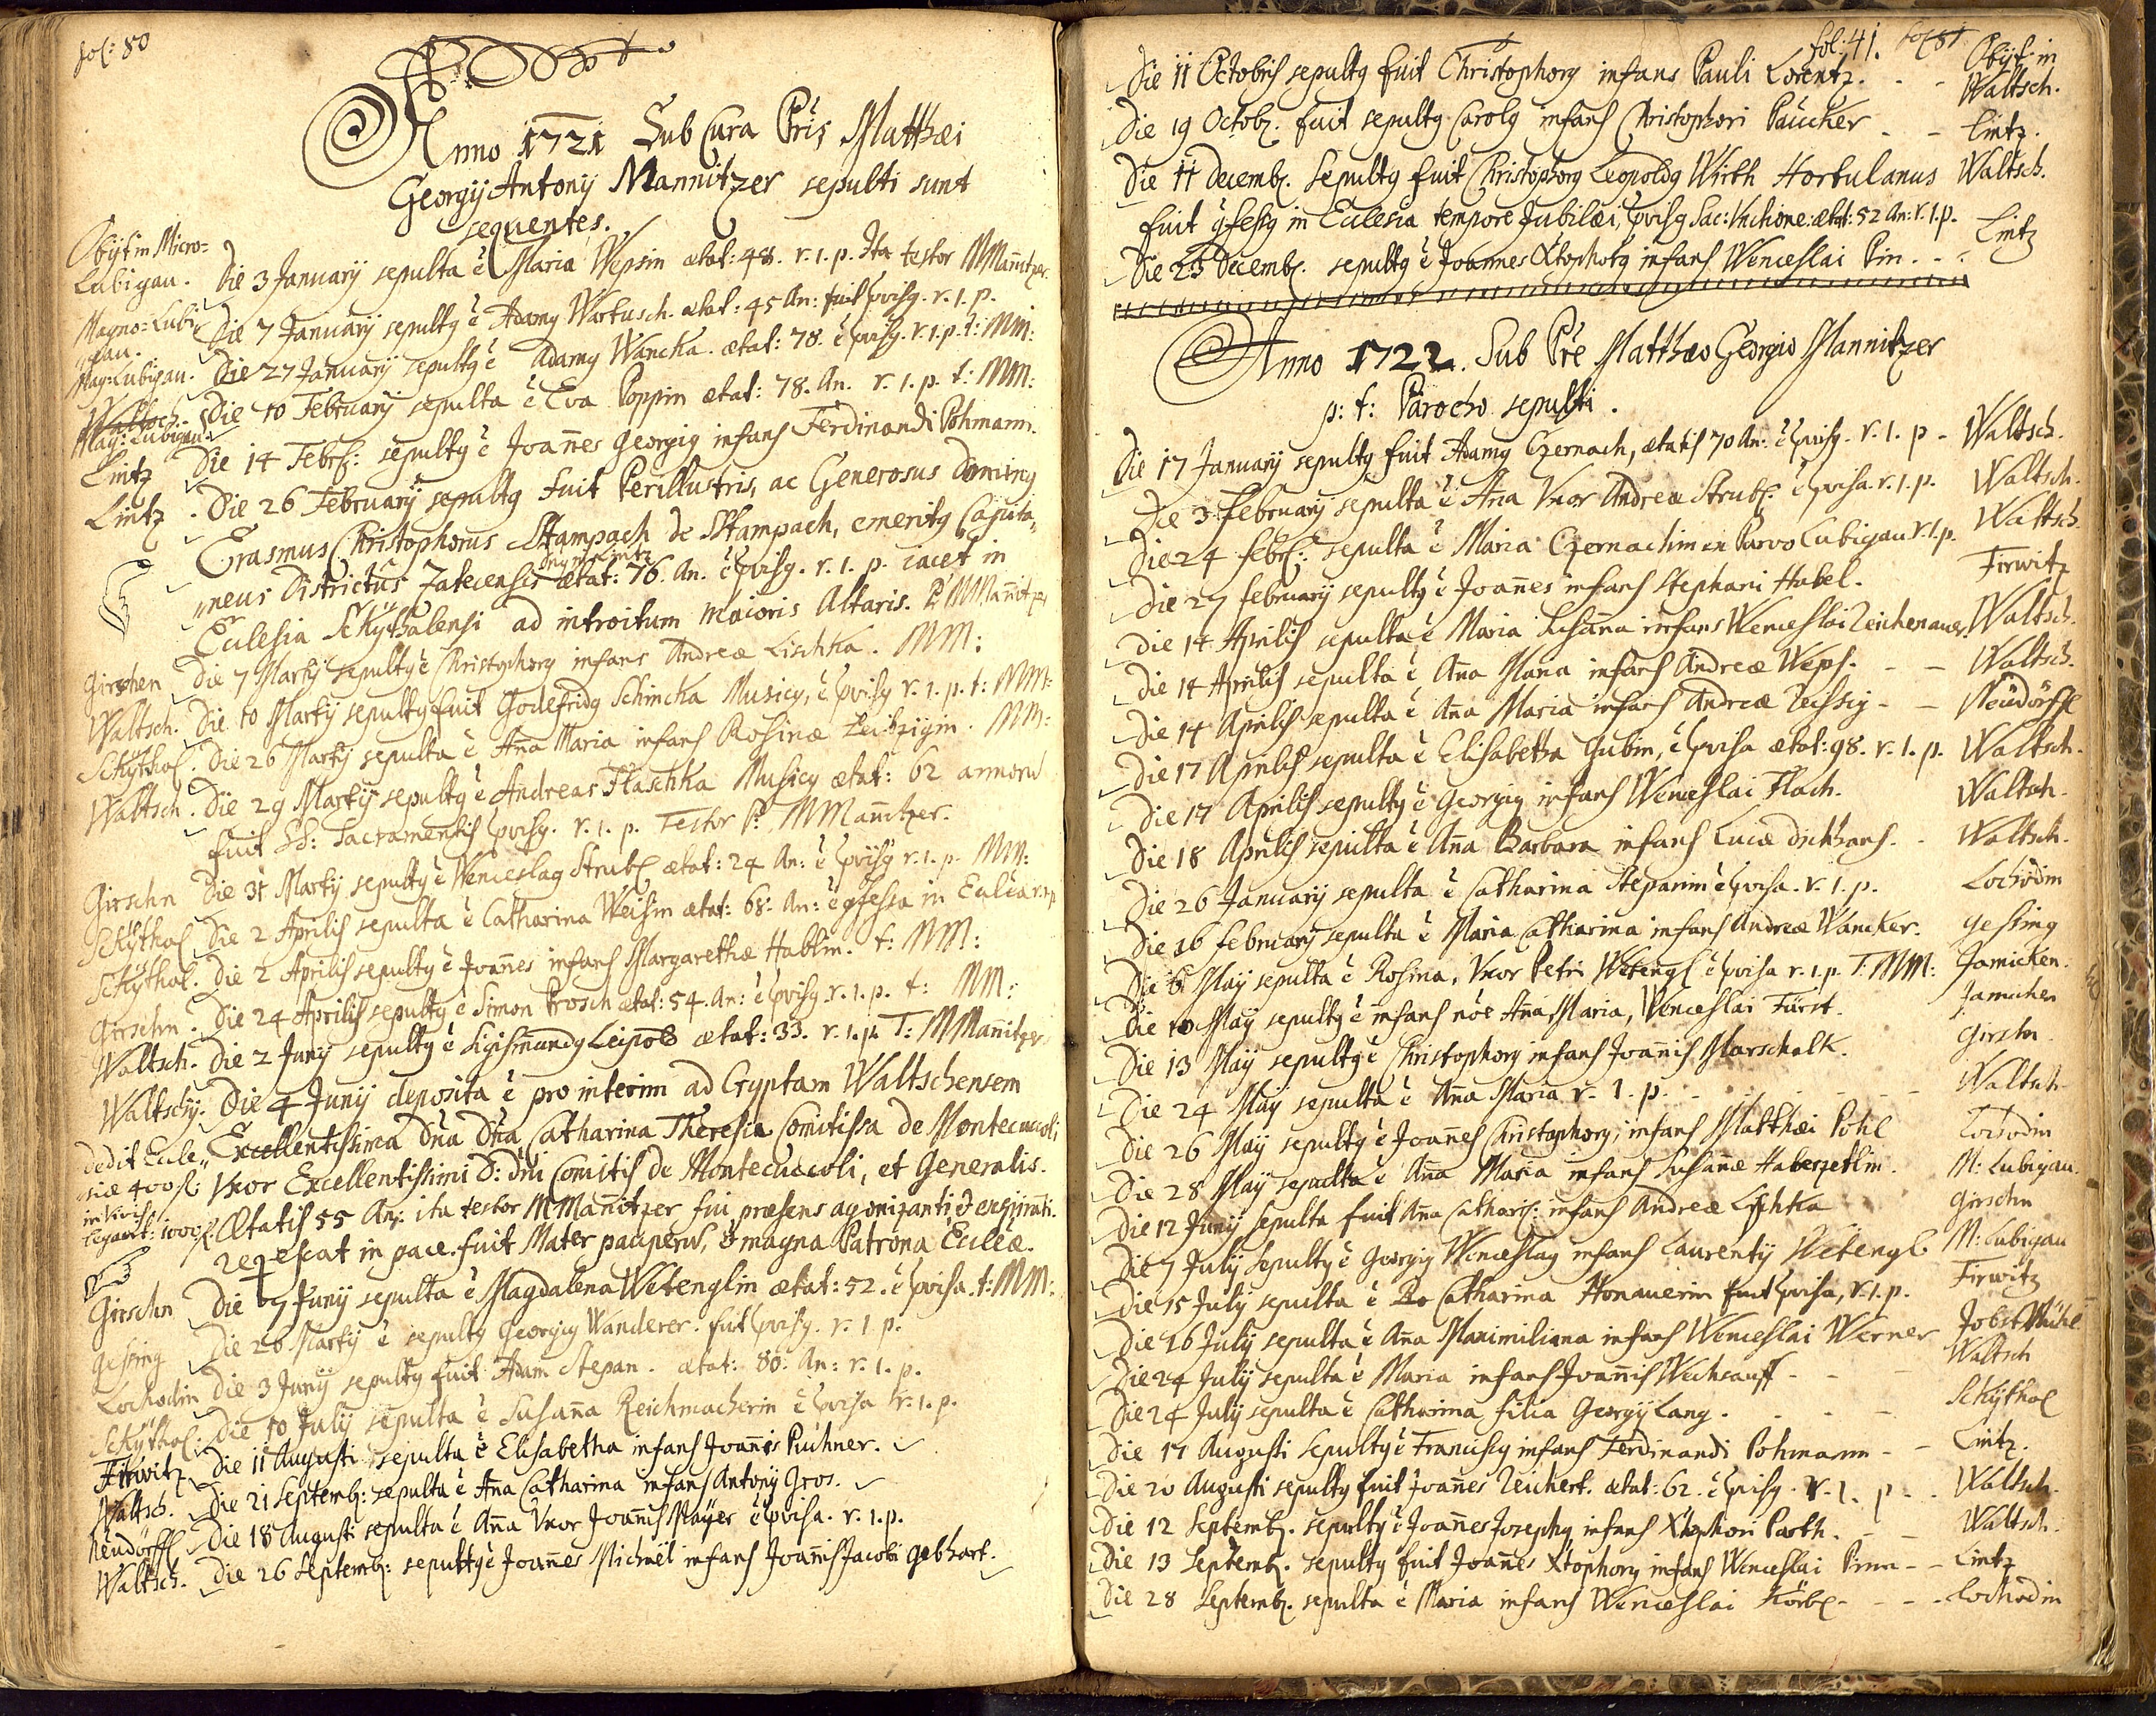 fol: 80
Anno 1721 Sub Cura Pris Matthæi
Georgij Antonij Mannitzer sepulti sunt
sequentes.
Obijt in Micro=
Lubigau. Die 3 Januarij sepulta ē Maria Wepsin ætat: 48. r. i. p. Ita testor MMañitzer.
Magno=Lubi
gau. Die 7 Januarij sepultq ē Adamq Wartusch. ætat: 45 An: fuit pvisq. r. i. p.
Mag: Lubigau. Die 27 Januarij sepultq ē Adamq Wancka. ætat: 78. ē pvisq. r. i. p. t: MM:
Waltsch.
Mag: Lubigau. Die 10 Februarij sepulta ē Eva Poppin ætat: 78. An. r. i. p. t: MM:
Lintz Die 14 Febr: sepultq ē Joañes Georgiq infans Ferdinandi Pohmann.
Lintz . Die 26 Februarij sepultq fuit Perillustris, ac Generosus Dominq
Erasmus Christophorus Stampach de Stampach, emeritq Capita,,
in Lintz
,,neus Districtûs Zatecensis ætat: 76. An. ē pvisq. r. i. p. iacet in
Ecclesia Schythalensi ad introitum maioris Altaris. P. MMañitzer
Girschen Die 7 Martij sepultq ē Christophorq infans Andreæ Lischka. MM:
Waltsch. Die 10 Martij sepultq fuit Godefridq Schimcka Musicq, ē pvisq r. i. p. t: MM:
Schÿthal. Die 26 Martij sepulta ē Aña Maria infans Rosinæ Zeitzigin. MM:
Waltsch. Die 29 Martij sepultq ē Andreas Flaschka Musicq ætat: 62 annorū
fuit SS: Sacramentis pvisq. r. i. p. Testor P. MMañitzer.
Girschn Die 31 Martij sepultq ē Wenceslaq Strubl ætat: 24 An: ē pvisq r. i. p. MM:
Schÿthal Die 2 Aprilis sepulta ē Catharina Weisin ætat: 68. An: ē qfessa in Ecclīa r. i. p.
Schÿthal. Die 2 Aprilis sepultq ē Joañes infans Margarethæ Hablin. t: MM:
Girschn. Die 24 Aprilis sepultq ē Simon Prosch ætat: 54. An: ē pvisq. r. i. p. t: MM:
Waltsch. Die 2 Junij sepultq ē Sigismundq Leipold ætat: 33. r. i. p. T: MMañitzer
Waltschij. Die 4 Junij deposita ē pro interim ad Cryptam Waltschensem
dedit Eccle,, Excellentissima Dña Dña Catharina Theresia Comitissa de Montecuccoli,
siæ 400 fl: Uxor Excellentissimi D: Dñi Comitis de Montecuccoli, et Generalis.
in vivis
legavit: 1000 fl. Ætatis 55 An: ita testor MMañitzer fui præsens agonizanti & expiranti.
reqiescat in pace. fuit Mater pauperū, & magna Patrona Eccliæ.
Girschn Die 7 Junij sepulta ē Magdalena Wetenglin ætat: 52. ē pvisa. t: MM:
Gessing Die 26 Martij ē sepultq Georgiq Wanderer. fuit pvisq. r. i. p.
Lochodin Die 3 Junij sepultq fuit Adam Stepan. ætat: 80: An: r. i. p.
Schÿthal. Die 10 Julij sepulta ē Susaña Reichmacherin ē pvisa r. i. p.
Firwitz Die 11 Augusti sepulta ē Elisabetha infans Joañis Puchner.
Waltsch. Die 21 Septemb: sepulta ē Aña Catharina infans Antonij Gros.
Neudörffl Die 18 Augusti sepulta ē Aña Uxor Joañis Mayer ē pvisa. r. i. p.
Waltsch. Die 26 Septemb: sepultq ē Joañes Michaël infans Joañis Jacobi Gebhart.
fol: 41. fol 81
Obijt in
Die 11 Octobris sepultq fuit Christophorq infans Pauli Lorentz. - - Waltsch.
Die 19 Octob. fuit sepultq Carolq infans Christophori Paucker - - Lintz.
Die 11 Decemb. sepultq fuit Christophorq Leopoldq Wirth Hortulanus Waltsch.
fuit qfessq in Ecclesia tempore Jubilæi, pvisq Sac: Unctione: ætat: 52 An: r. i. p.
Die 23 Decemb. sepultq ē Joannes Xtophorq infans Wenceslai Pin. - - Lintz
Anno 1722. Sub Pre Matthæo Georgio Mannitzer
p: t: Parocho sepulti.
Die 17 Januarij sepultq fuit Adamq Czernach, ætatis 70 An: ē pvisq. r. i. p - Waltsch.
Die 3 Februarij sepulta ē Aña Uxor Andreæ Strubl. ē pvisa. r. i. p. Waltsch.
Die 24 Febr: sepulta ē Maria Czernachin ex Parvo Lubigau r. i. p. Waltsch
Die 27 Februarij sepultq ē Joañes infans Stephani Habel. Firwitz
Die 14 Aprilis sepulta ē Maria Susaña infans Wenceslai Zeichenauer. Waltsch.
Die 14 Aprilis sepulta ē Aña Maria infans Andreæ Weps. - - Waltsch.
Die 14 Aprilis sepulta ē Aña Maria infans Andreæ Zeissig - - Neudörffl
Die 17 Aprilis sepulta ē Elisabetha Gubin, ē pvisa ætat: 98. r. i. p. Waltsch.
Die 17 Aprilis sepultq ē Georgiq infans Wenceslai Flach. Waltsch.
Die 18 Aprilis sepulta ē Aña Barbara infans Lucæ Dickhans. - Waltsch.
Die 26 Januarij sepulta ē Catharina Stepanin ē pvisa. r. i. p. Lochodin
Die 16 Februarij sepulta ē Maria Catharina infans Andreæ Wancker. Gessing
Die 6 Maij sepulta ē Rosina, Uxor Petri Wetengl ē pvisa r. i. p. T. MM: Jamicken.
Die 10 Maij sepultq ē infans nōe Aña Maria, Wenceslai Fürst. Jamichen
Die 13 Maij sepultq ē Christophorq infans Joañis Marschalk. Girschn
Die 24 Maij sepulta ē Aña Maria r. i. p. - - - - Waltsch
Die 26 Maij sepultq ē Joañes Christophorq, infans Matthæi Pöhl Lochodin
Die 28 Maij sepulta ē Aña Maria infans Susañæ Haberzetlin. M: Lubigau.
Die 12 Junij sepulta fuit Aña Cathari: infans Andreæ Lischka Girschn
Die 7 Julij sepultq ē Georgiq Wenceslaq infans Laurentij Wetengl M: Lubigau
Die 15 Julij sepulta ē Catharina Honauerin fuit pvisa, r. i. p. Firwitz
Die 16 Julij sepulta ē Aña Maximiliana infans Wenceslai Werner Jobst Mühl
Die 24 Julij sepulta ē Maria infans Joañis Wechsauff - - - Waltsch
Die 24 Julij sepulta ē Catharina filia Georgij Lang. - - - Schÿthal
Die 17 Augusti sepultq ē Franciscq infans Ferdinandi Pohmann - - Lintz.
Die 20 Augusti sepultq fuit Joañes Zeichert. ætat: 62. ē pvisq. r. i. p - - Waltsch.
Die 12 Septemb. sepultq ē Joañes Josephq infans Xtophori Parth. - - Waltsch.
Die 13 Septemb. sepultq fuit Joañes Xtophorq infans Wenceslai Pinn - - Lintz
Die 28 Septemb. sepulta ē Maria infans Wenceslai Körbl - - - Lochodin